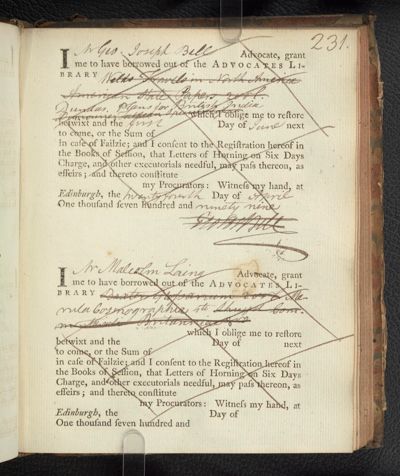 231.
I Mr Geo: Joseph Bell Advocate, grant
me to have borrowed out of the ADVOCATES LI-
BRARY Welds Travels in North America
American State Papers
Dundas, plans for British India
which I oblige me to restore
betwixt and the first Day of June next
to come, or the Sum of
in case of Failzie; and I consent to the Registration hereof in
the Books of Session, that Letters of Horning on Six Days
Charge, and other executorials needful, may pass thereon, as
effeirs; and thereto constitute
my Procurators: Witness my hand, at
Edinburgh, the twenty fourth Day of April
One thousand seven hundred and ninety nine
Geo Jos Bell
I Mr Malcolm Laing Advocate, grant
me to have borrowed out of the ADVOCATES LI-
BRARY
Cosmographia
Britannica
which I oblige me to restore
betwixt and the Day of next
to come, or the Sum of
in case of Failzie; and I consent to the Registration hereof in
the Books of Session, that Letters of Horning on Six Days
Charge, and other executorials needful, may pass thereon, as
effeirs; and thereto constitute
my Procurators: Witness my hand, at
Edinburgh, the Day of
One thousand seven hundred and